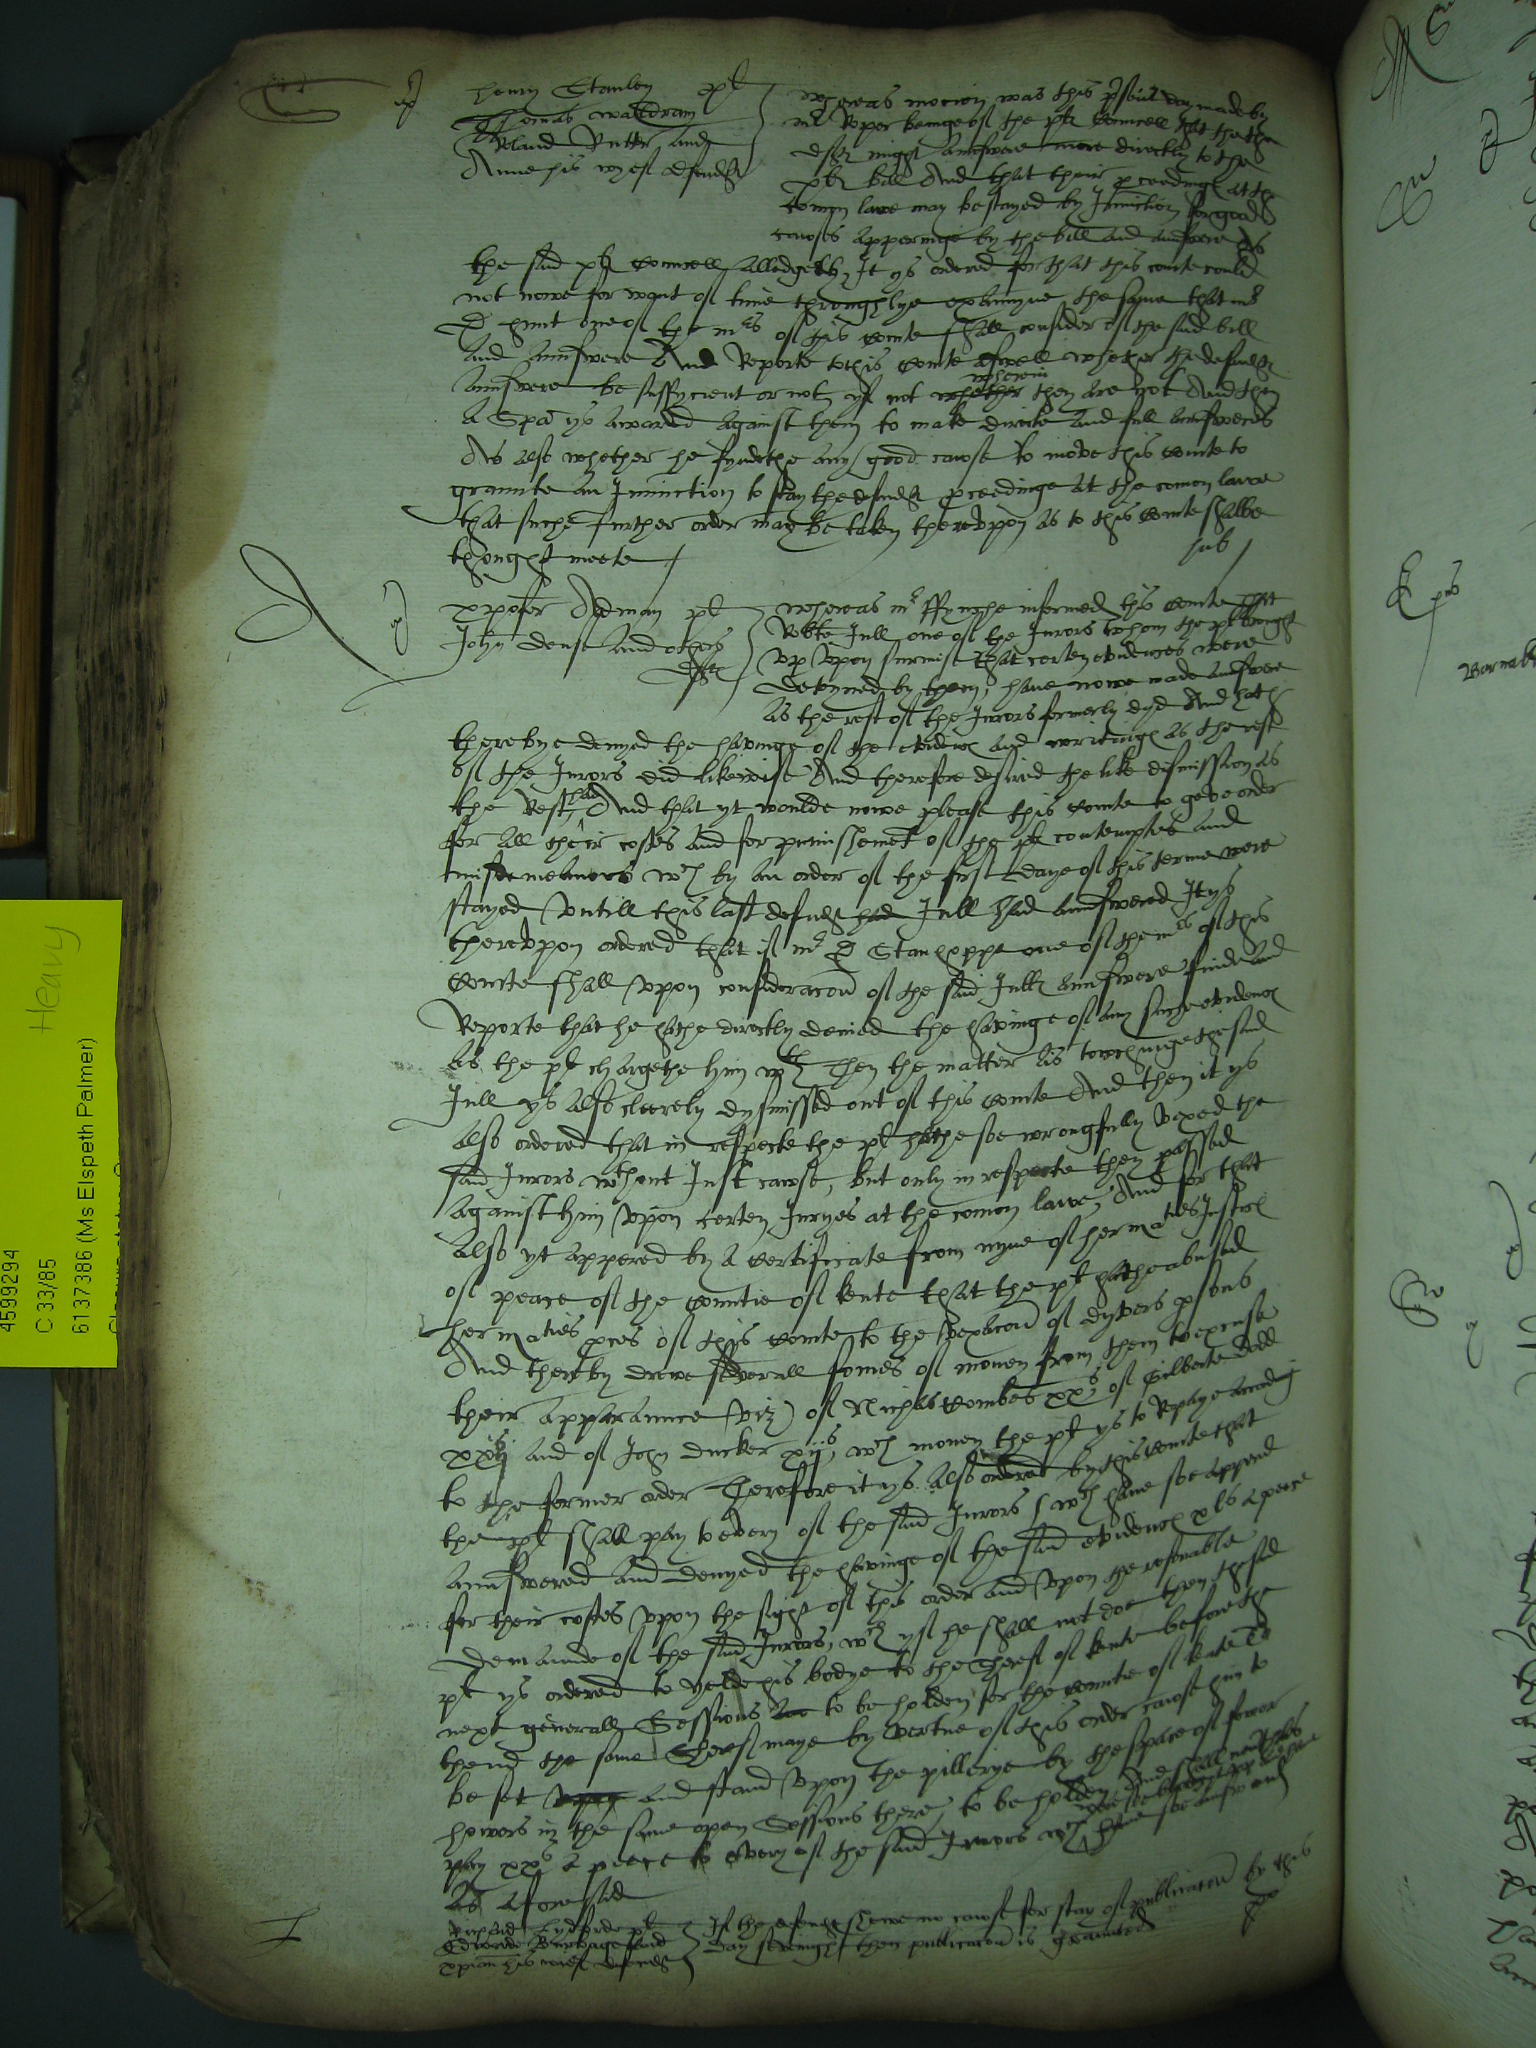 Henry Stanley pl
Thomas Waldram
Roland Rutter and
Anne his wyef defendtes
whereas mocion was this pseut day made by
mr Roper beinge of the pl councell that the
deftes might aunswere more directly to the
pltes bill And that their pceedinges at the
comon lawe may be stayed by Iniunction for good
causes apperinge by the bill and aunswere As
the said pltes councell alledgeth, It ys ordered for that this courte could
not nowe for want of time throughlye examyne the same that mr
D hunt one of the mrs of this courte shall consider of the said bill
and aunswere And Reporte to this courte aswell whether the defendtes
aunswere be suffycient or not, yf not whether wherein they are not And then
A Spa ys awarded against them to make directe and full aunsweres
As also whether he fyndethe any good cause to move this courte to
graunte an Iniunction to stay the defendtes pceedinge at the comon lawe
that suche further order may be taken therevppon as to this courte shalbe
thought meete
xpofer Adman pl
John Dense and others
deftes
whereas mr ffynche informed this courte that
Robte Jull one of the Jurors whom the pl brought
vp vpon surmise that certen evidences were
deteyned by them, have nowe made aunswere
as the rest of the Jurors formerly dyd And hath
therebye denyed the havinge of the evidences and writinges as the rest
of the Jurors did likewise And therefore desired the like dismission as
the Rest had And that yt woulde nowe please this courte to geve order
for all their costes and for punishemet of the pltes contemptes and
misdemeanors wch by an order of the first daye of this terme were
stayed vntill this last defendt had Jull had aunswered It ys
therevppon ordered that if mr D Stanhoppe one of the mrs of this
courte shall vpon consideracon of the said Julles aunswere finde and
Reporte that he hathe directly denied the havinge of any suche evidences
as the pl chargethe him wth Then the matter as towchinge the said
Jull ys also cleerely dysmissed out of this courte And then it ys
also ordered that in respecte the pl hathe soe wrongfully vexed the
said Jurors wthout Just cause, but only in respecte they passed
against him vpon certen Juryes at the comon lawe, And for that
also yt appered by a certificate from nyne of her maties Justices
of peace of the countie of kente that the pl hathe abused
her maties pces of this courte to the vexacon of dyvers psons
And thereby drewe severall somes of money from them to excuse
their apparaunce viz of Nichas Combes xxs of Gilberte Dodd
and of John Ducker xijs, wch money the pl ys to Repaye accordinge
to the former order Therefore it ys also ordered by this courte that
the pl shall pay to every of the said Jurors wch have soe appered
aunswered and denyed the havinge of the said evidences xls a peece
for their costes vpon the sight of this order and vpon the resonable
demaunde of the said Jurors, wch yf he shall not doe then the said
pl ys ordered to yelde his bodye to the Sheref of kente before the
next generall Sessions to be holden for the countie of kente To
thend the same Sheref maye by vertue of this order cause him to
be set and stand vpon the pillerye by the space of fower
howers in the same open Sessions there, to be holden And shall
pay xxs a peece to every of the said Jurors wch have soe aunswered
As aforesaid
Richard Lydforde pl
Edwarde Burbage and
xpian his wief defendtes
If the defendtes shewe no cause for stay of publicacon by this
day sevenight then publicacon is graunted
4599294
C 33/85
6137386 (Ms Elspeth Palmer)
Heavy